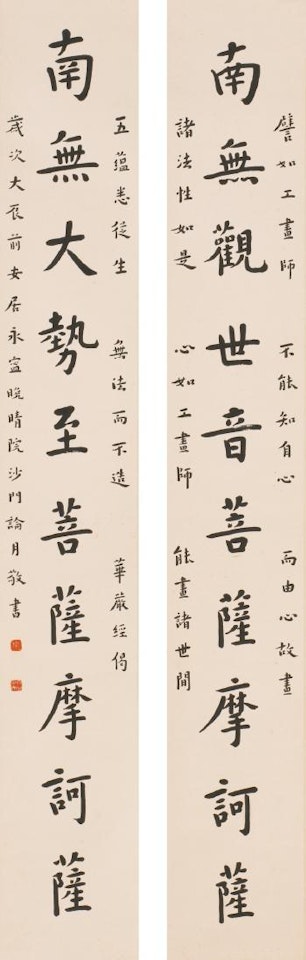 譬如工畫師 不能知自心 而由心故畫
南無觀世音菩薩摩訶薩
諸法性如是 心如工畫師 能畫諸世間
五蘊悉從生 無法而不造 華嚴經偈
南無大勢至菩薩摩訶薩
歲次大辰前安居永寍晚晴院沙門論月敬書